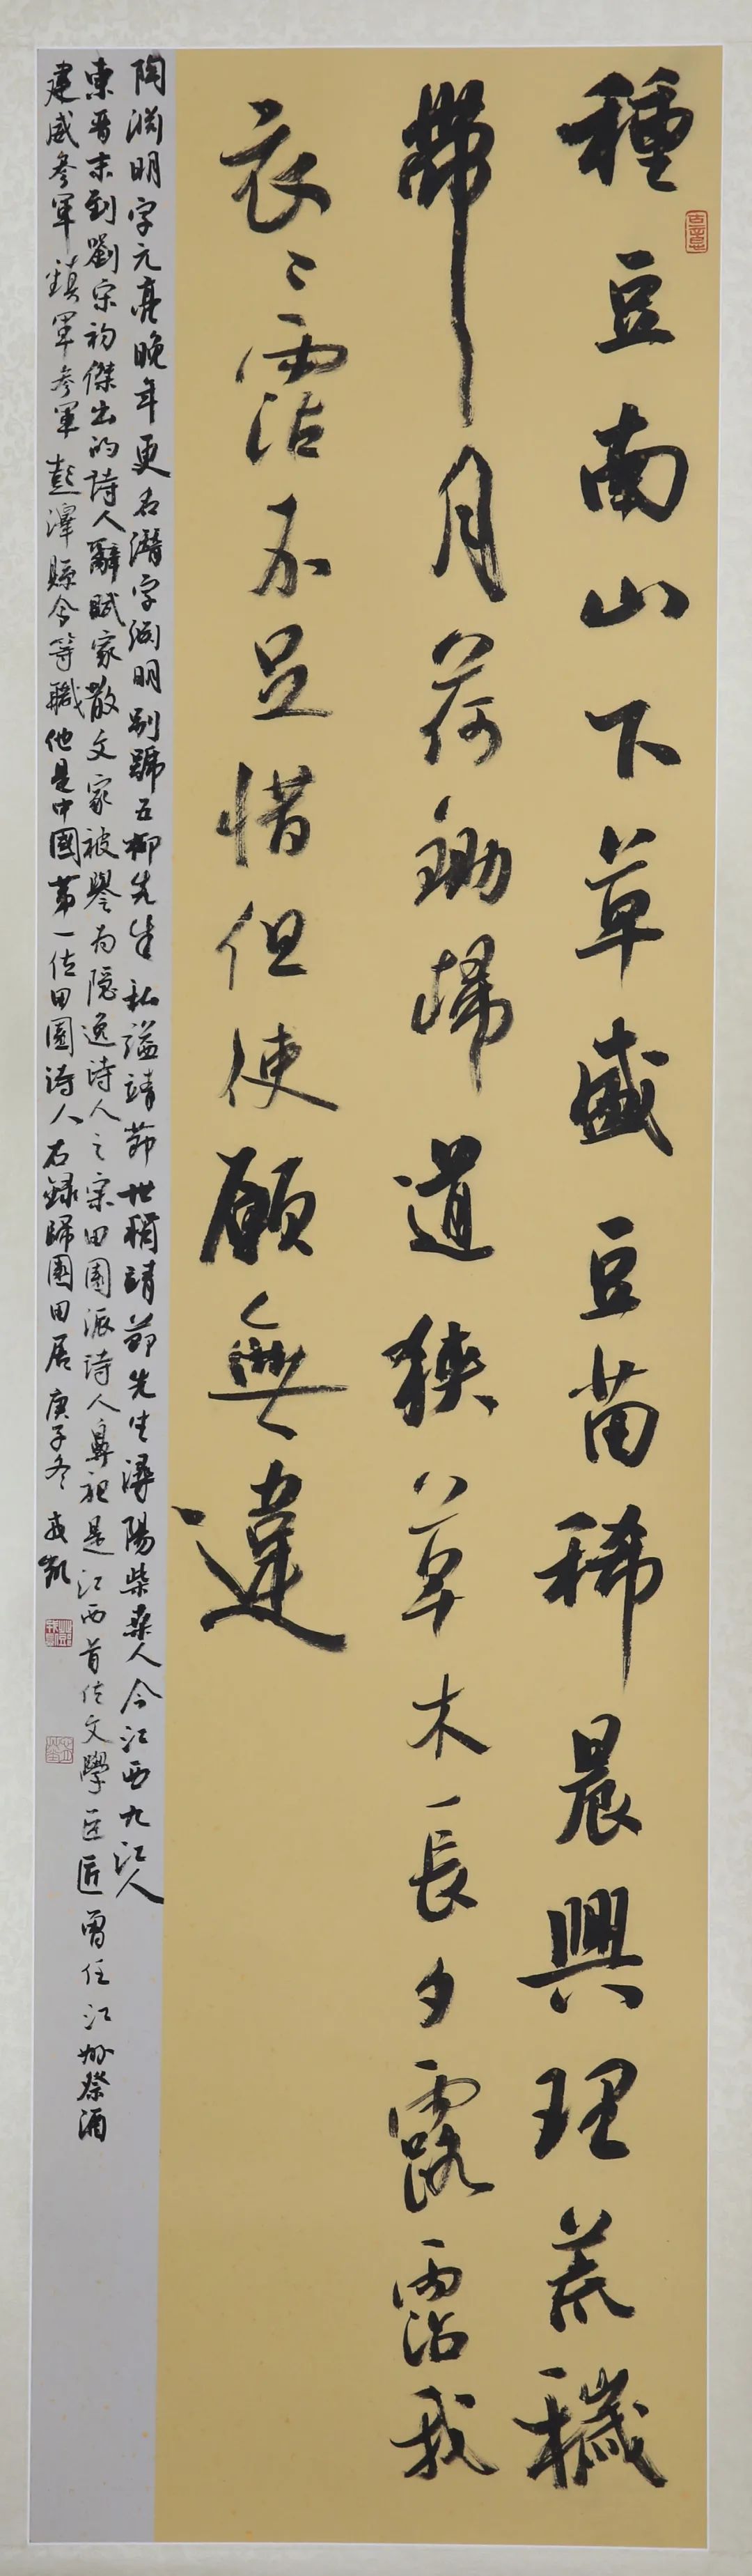 種豆南山下草盛豆苗稀晨興理荒穢
帶月荷鋤歸道狹草木長夕露霑我
衣〻霑不足惜但使願無違
陶淵明字元亮晚年更名潛字淵明別號五柳先生私謚靖節世稱靖節先生潯陽柴桑人今江西九江人
東晉末到劉宋初傑出的詩人辭賦家散文家被譽為隱逸詩人之宗田園派詩人鼻祖是江西首位文學巨匠曾任江州祭酒
建威參軍鎮軍參軍彭澤縣令等職他是中國第一位田園詩人右錄歸園田居庚子冬